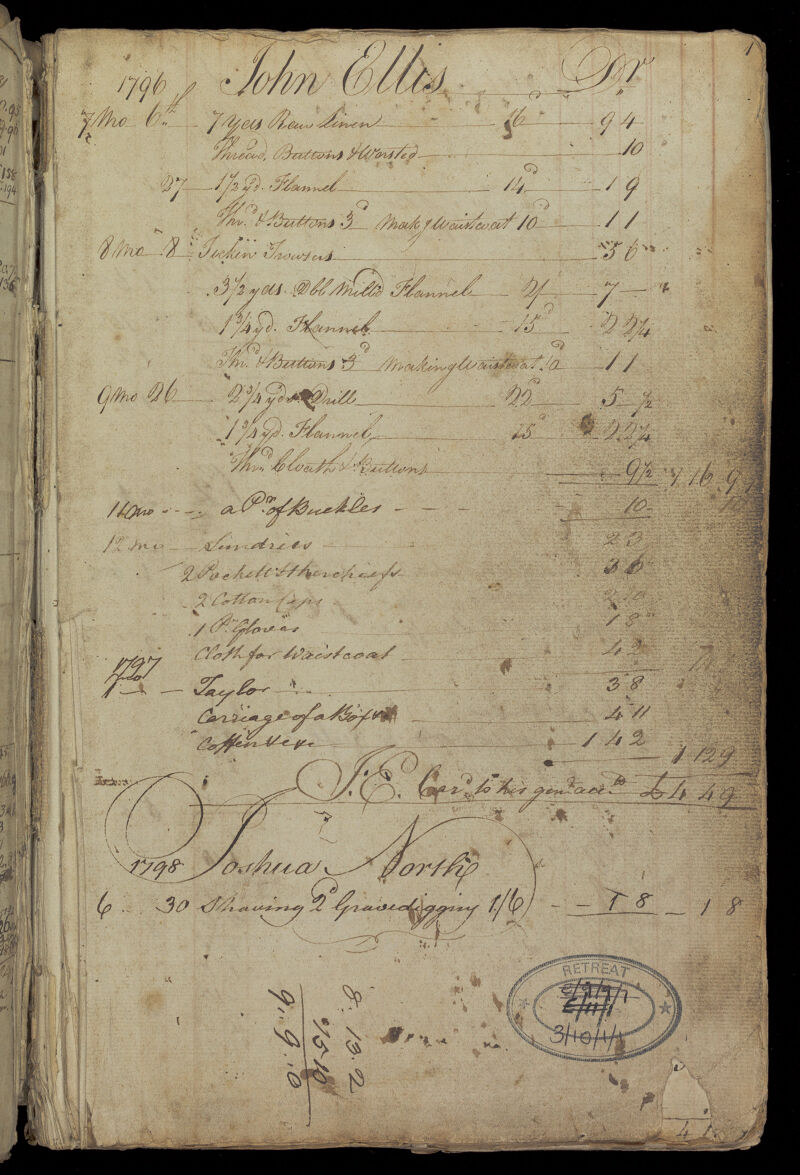 1
1796 John Ellis Dr
7 Mo 6th 7 yds Raw linen 16d 9 4
Thread, Buttons & Worsted 10
27 1 1/2 yd. Flannel 14d 1 9
Thrd & Buttons 3d Makg Waistcoat 10d 1 1
8 Mo 8 Ticken Trowsers 5 6
3 1/2 yds. Dbl Mill'd Flannel 2/ 7 —
1 3/4 yd. Flannel 15d 2 2 1/4
Thrd & Buttons 3d Making Waistcoat 10d 1 1
9 Mo 26 2 3/4 yds Drill 22d 5 1/2
1 3/4 yd. Flannel 15d 2 2 1/4
Thrd Cloath & Buttons 9 1/2 1 16 9
11 mo a Pr of Buckles 10
12 mo Sundries 2 3
2 Pockett Hkerchiefs 3 6
2 Cotton Caps
1 Pr Gloves 1 8
Cloth for Waistcoat 4 2
1797
1 mo Taylor 3 8
Carriage of a Box &c 4 11
Coffin &c &c 1 4 2
1 12 9
J.E. Card to his genl acct £4 4 9
1798 Joshua North
6 30 Shaving 2d Gravedigging 1/6 1 8 1 8
8. 13. 2
15. 10
9. 9. 0
RETREAT
3/10/1/1
4 1